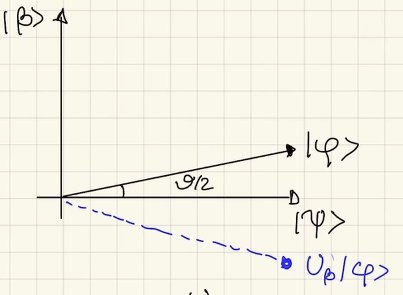 |β>
|φ>
ϑ/2
|ψ>
Uβ|φ>